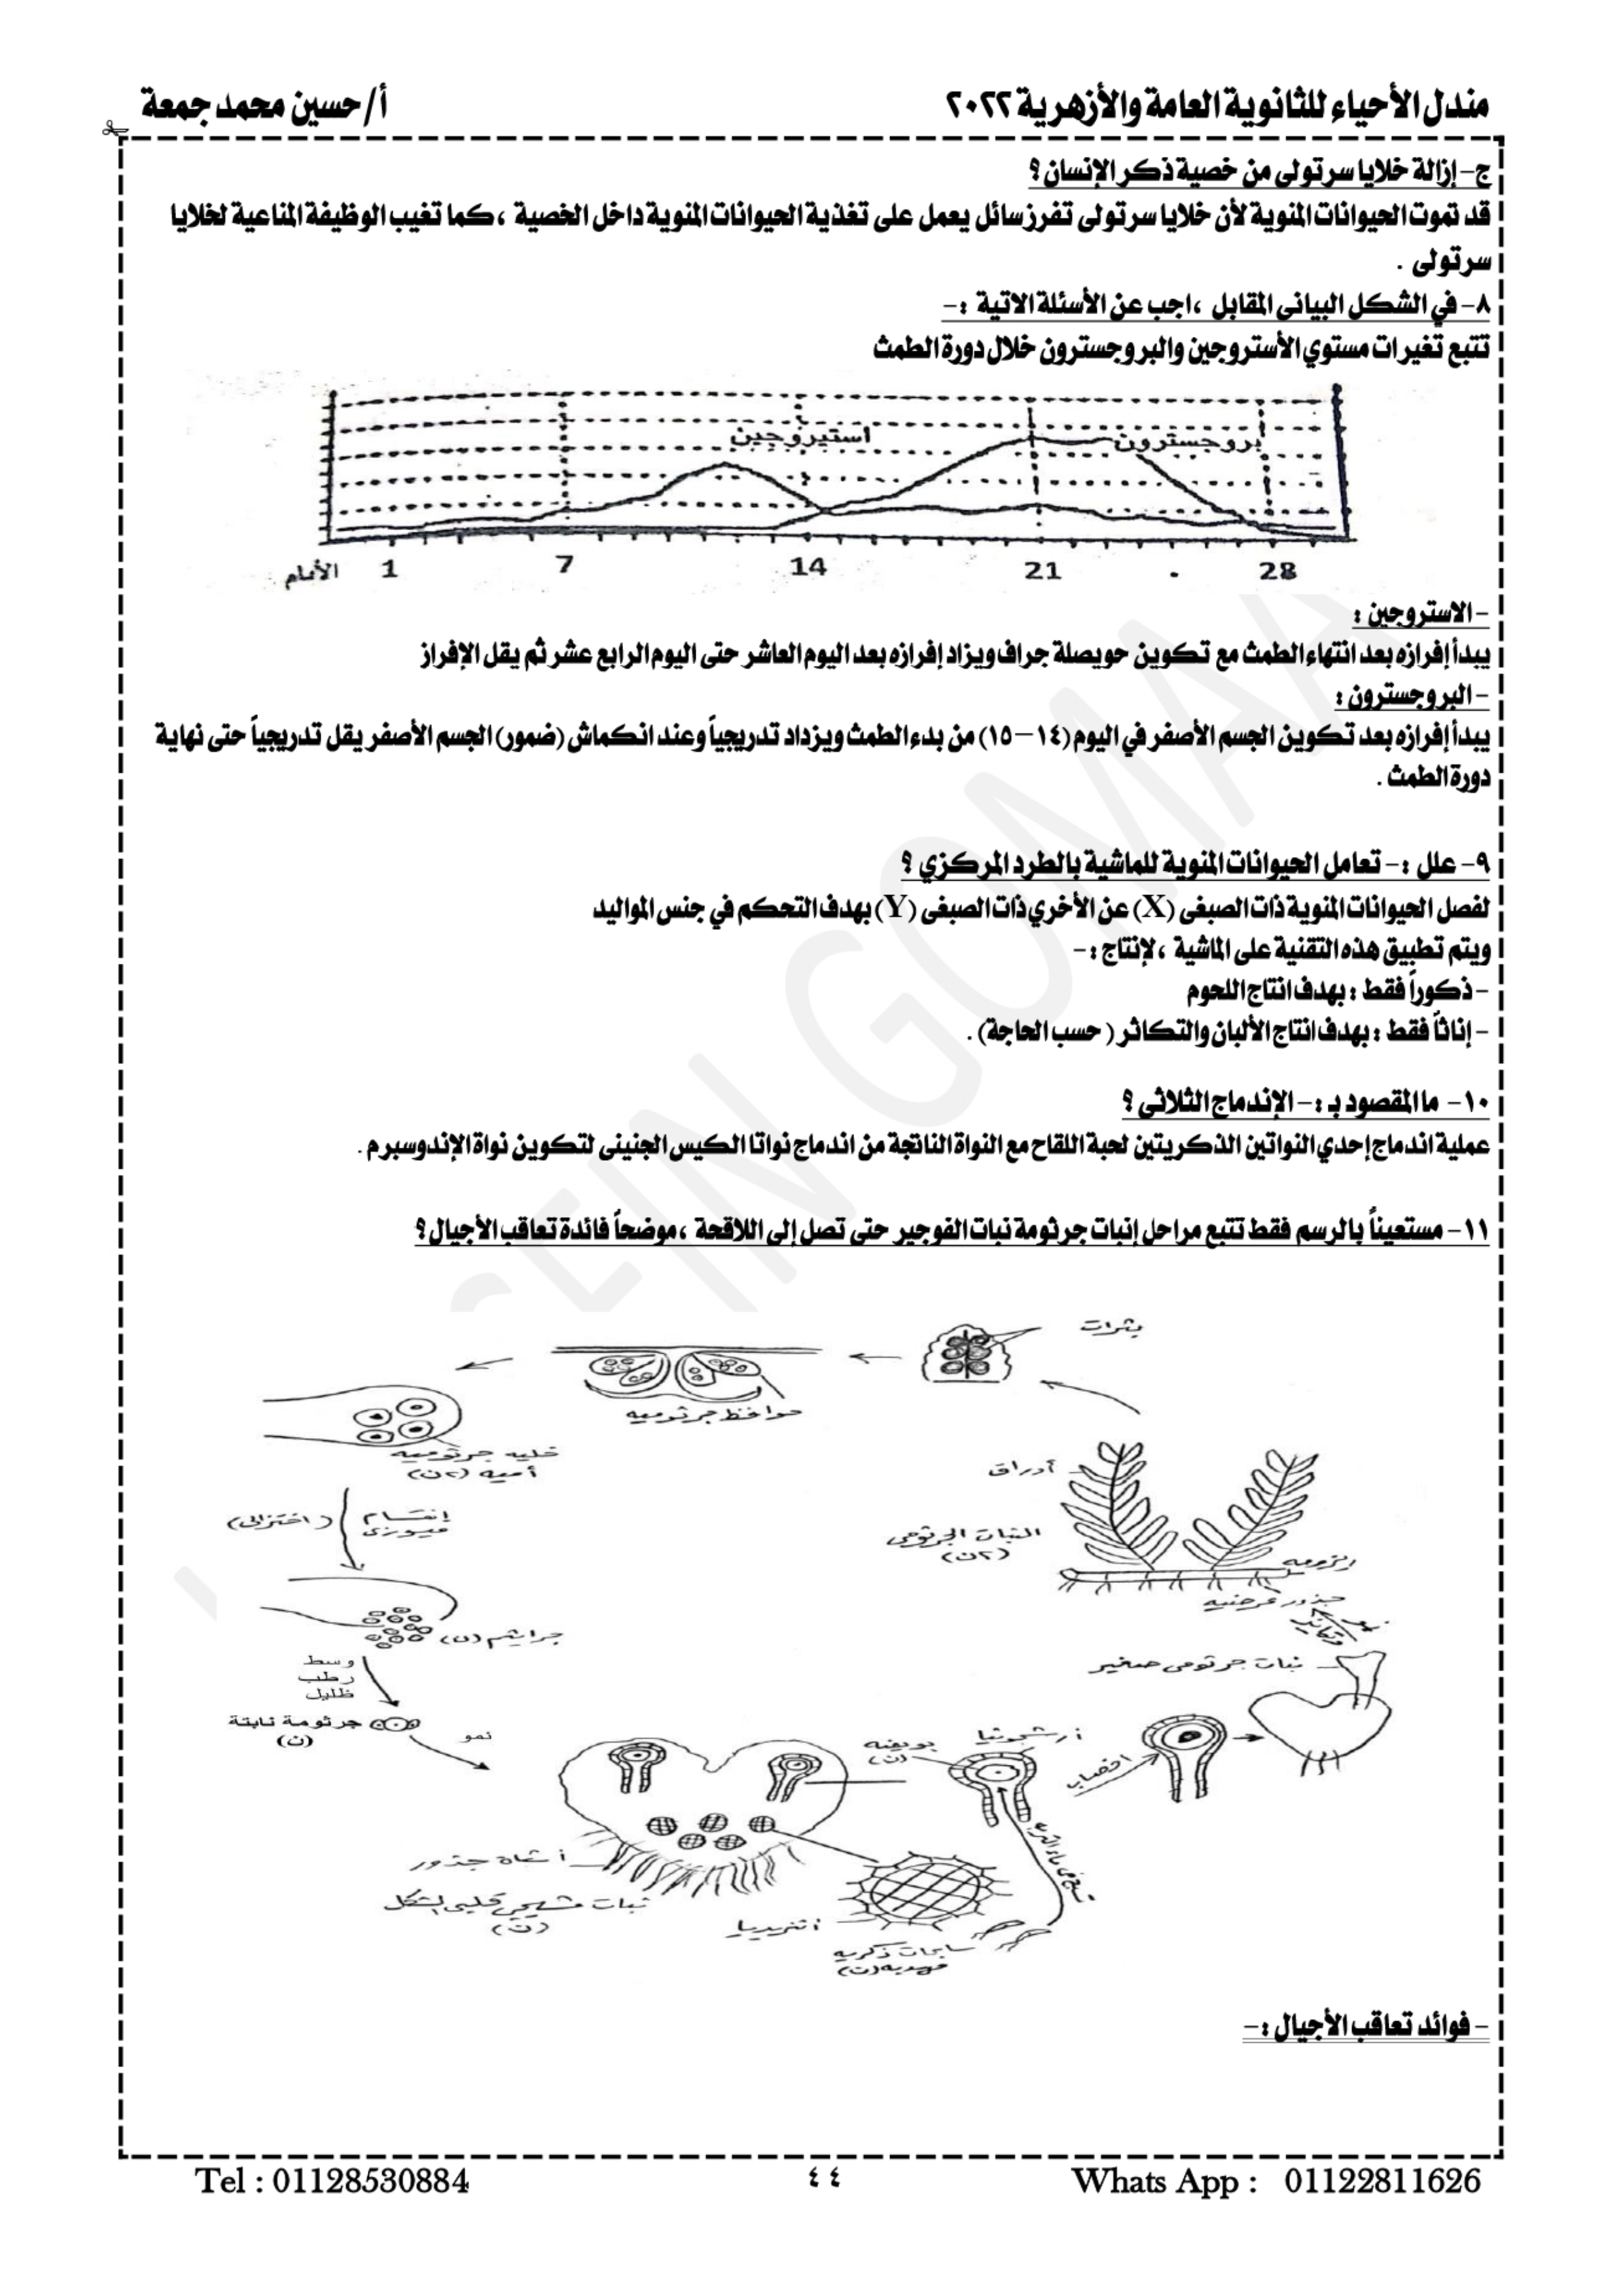 مندل الأحياء للثانوية العامة والأزهرية ٢٠٢٢
أ/ حسين محمد جمعة
ج- إزالة خلايا سرتولى من خصية ذكر الإنسان؟
قد تموت الحيوانات المنوية لأن خلايا سرتولى تفرز سائل يعمل على تغذية الحيوانات المنوية داخل الخصية ، كما تغيب الوظيفة المناعية لخلايا
سرتولى .
٨- في الشكل البيانى المقابل ، اجب عن الأسئلة الاتية :-
تتبع تغيرات مستوي الأستروجين والبروجسترون خلال دورة الطمث
استيروجين
بروجسترون
الأمام 1 7 14 21 28
- الاستروجين :
يبدأ إفرازه بعد انتهاء الطمث مع تكوين حويصلة جراف ويزاد إفرازه بعد اليوم العاشر حتى اليوم الرابع عشر ثم يقل الإفراز
- البروجسترون :
يبدأ إفرازه بعد تكوين الجسم الأصفر في اليوم (١٤–١٥) من بدء الطمث ويزداد تدريجياً وعند انكماش (ضمور) الجسم الأصفر يقل تدريجياً حتى نهاية
دورة الطمث .
٩- علل :- تعامل الحيوانات المنوية للماشية بالطرد المركزي ؟
لفصل الحيوانات المنوية ذات الصبغى (X) عن الأخري ذات الصبغى (Y) بهدف التحكم في جنس المواليد
ويتم تطبيق هذه التقنية على الماشية ، لإنتاج :-
- ذكوراً فقط : بهدف انتاج اللحوم
- إناثاً فقط : بهدف انتاج الألبان والتكاثر ( حسب الحاجة) .
١٠- ما المقصود بـ :- الإندماج الثلاثى ؟
عملية اندماج إحدي النواتين الذكريتين لحبة اللقاح مع النواة الناتجة من اندماج نواتا الكيس الجنينى لتكوين نواة الإندوسبرم .
١١- مستعيناً بالرسم فقط تتبع مراحل إنبات جرثومة نبات الفوجير حتى تصل إلى اللاقحة ، موضحاً فائدة تعاقب الأجيال؟
بثرات
حوافظ جرثوميه
خليه جرثوميه
أميه (٢ن)
إنقسام
ميوزى
(اختزالى)
جراثيم (ن)
وسط
رطب
ظليل
جرثومة نابتة
(ن)
نمو
أوراق
النبات الجرثومى
(٢ن)
ريزومه
جذور عرضيه
نمو
وتمايز
نبات جرثومى صغير
أرشجونيا
بويضه
(ن)
اخصاب
تسبح فى ماء التربه
أشباه جذور
نبات مشيجى قلبى الشكل
(ن)
انثريديا
سابحات ذكريه
مهدبه (ن)
- فوائد تعاقب الأجيال :-
SEIN GOMAA
Tel : 01128530884
٤٤
Whats App : 01122811626